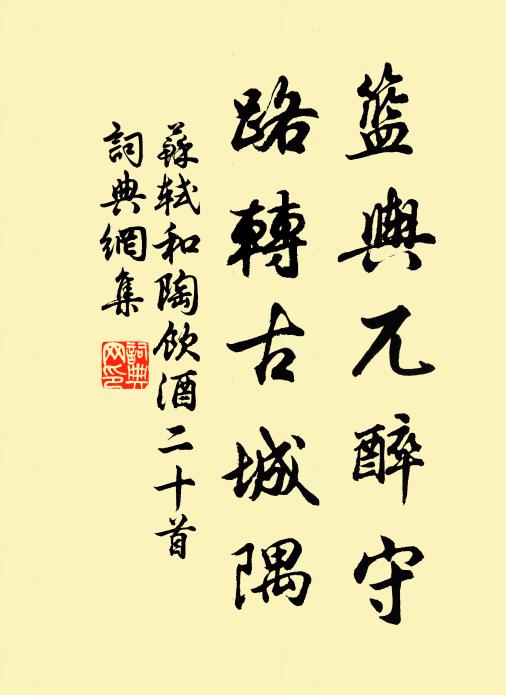 籃輿兀醉守
路轉古城隅
蘇軾和陶飲酒二十首
詞典網集
詞典
网印